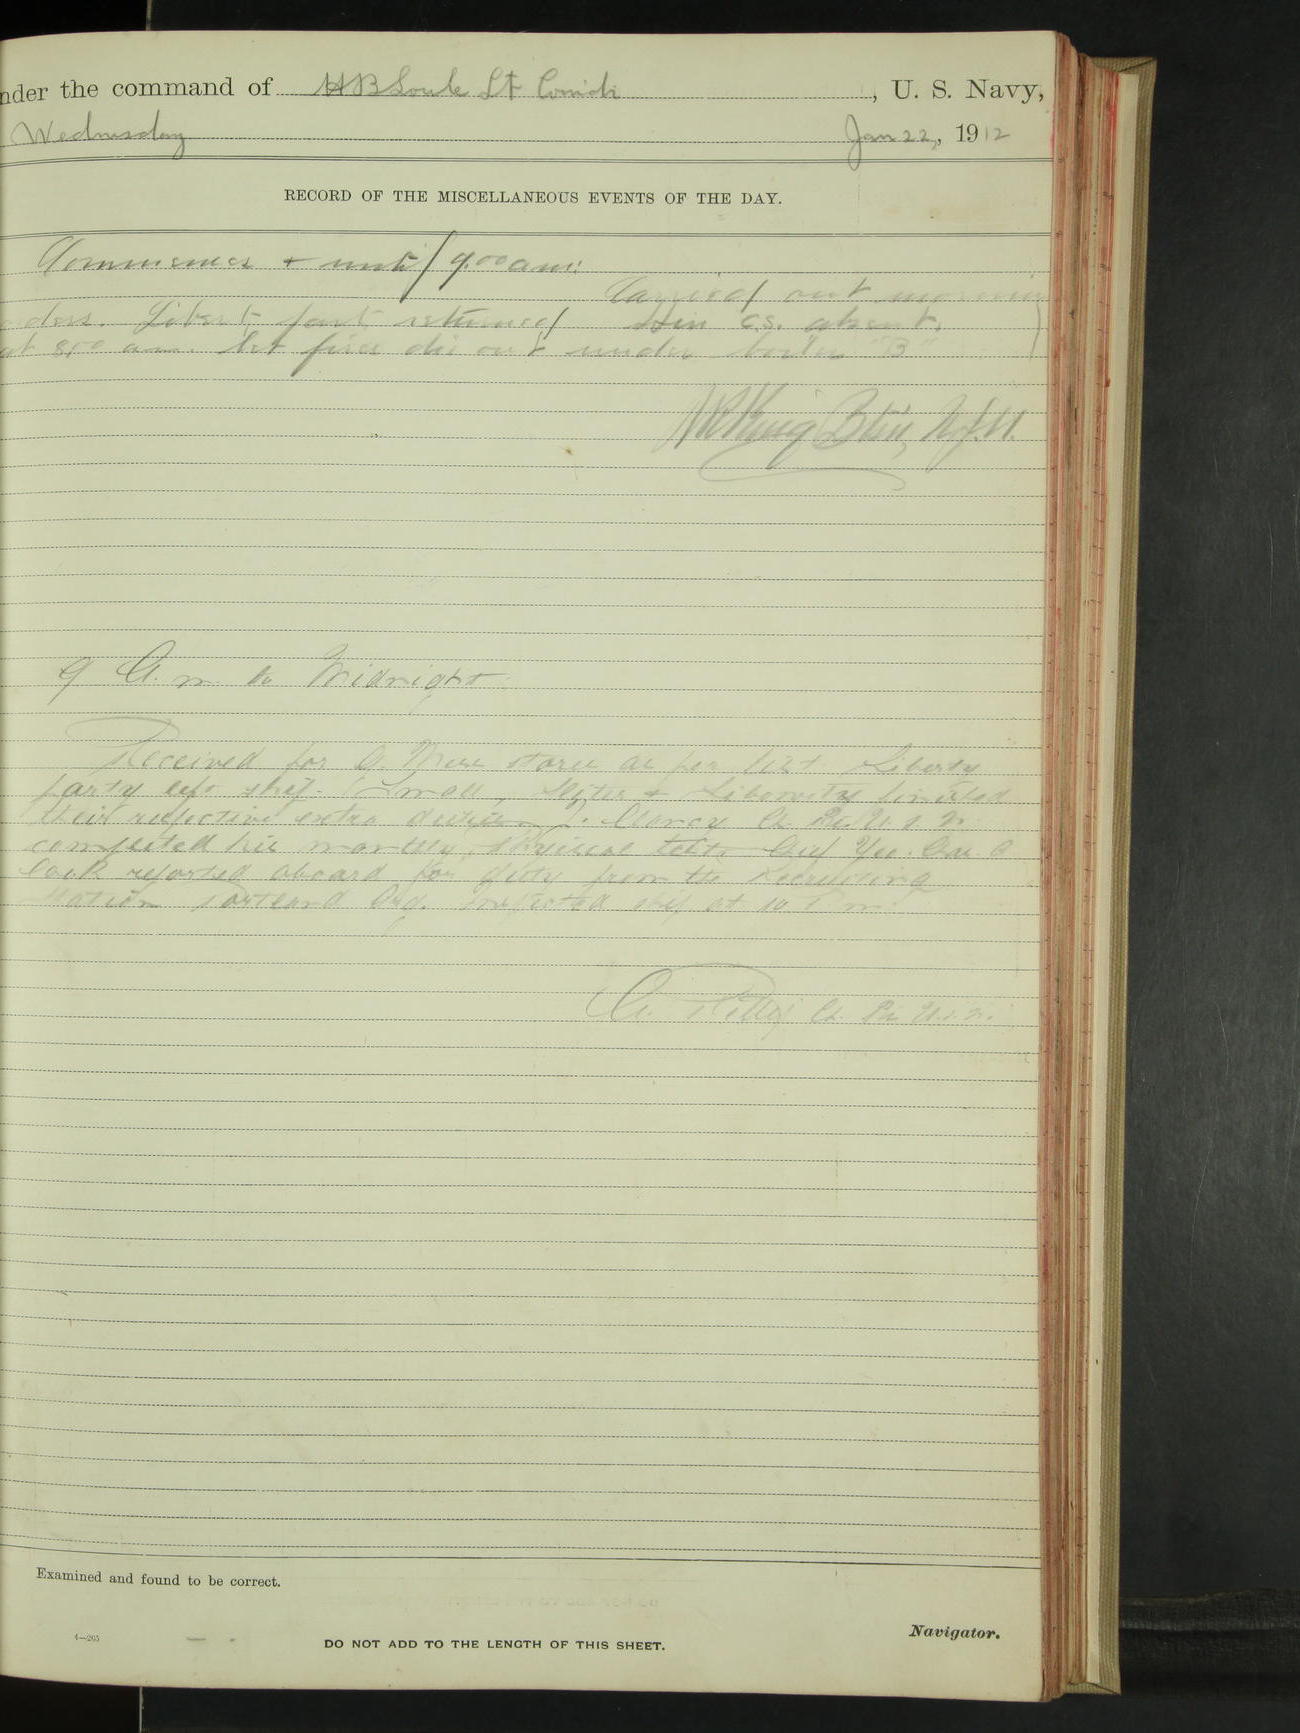 nder the command of H B Soule Lt Comdr, U. S. Navy,
Wednesday Jan 22, 1912
RECORD OF THE MISCELLANEOUS EVENTS OF THE DAY.
Commences + until 9.00 am:
Carried out morning
orders. Liberty party returned absent.
at 8.00 am. let fires die out under boiler "B"
9 A. m to Midnight
Received for stores as per list Liberty
party left ship. Small, + Libowitz finished
their respective extra duties. J. Clancy
completed his monthly physical test. Chf Yeo.
reported aboard for duty from the Recruiting
station Portland Org. Inspected ship at 10 P m.
U.S.N.
Examined and found to be correct.
4—205
DO NOT ADD TO THE LENGTH OF THIS SHEET.
Navigator.